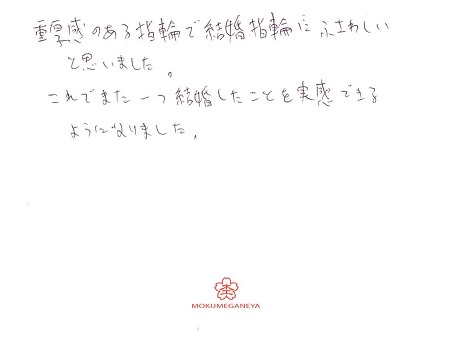 重厚感のある指輪で結婚指輪にふさわしい
と思いました。
これでまた一つ結婚したことを実感できる
ようになりました。
MOKUMEGANEYA